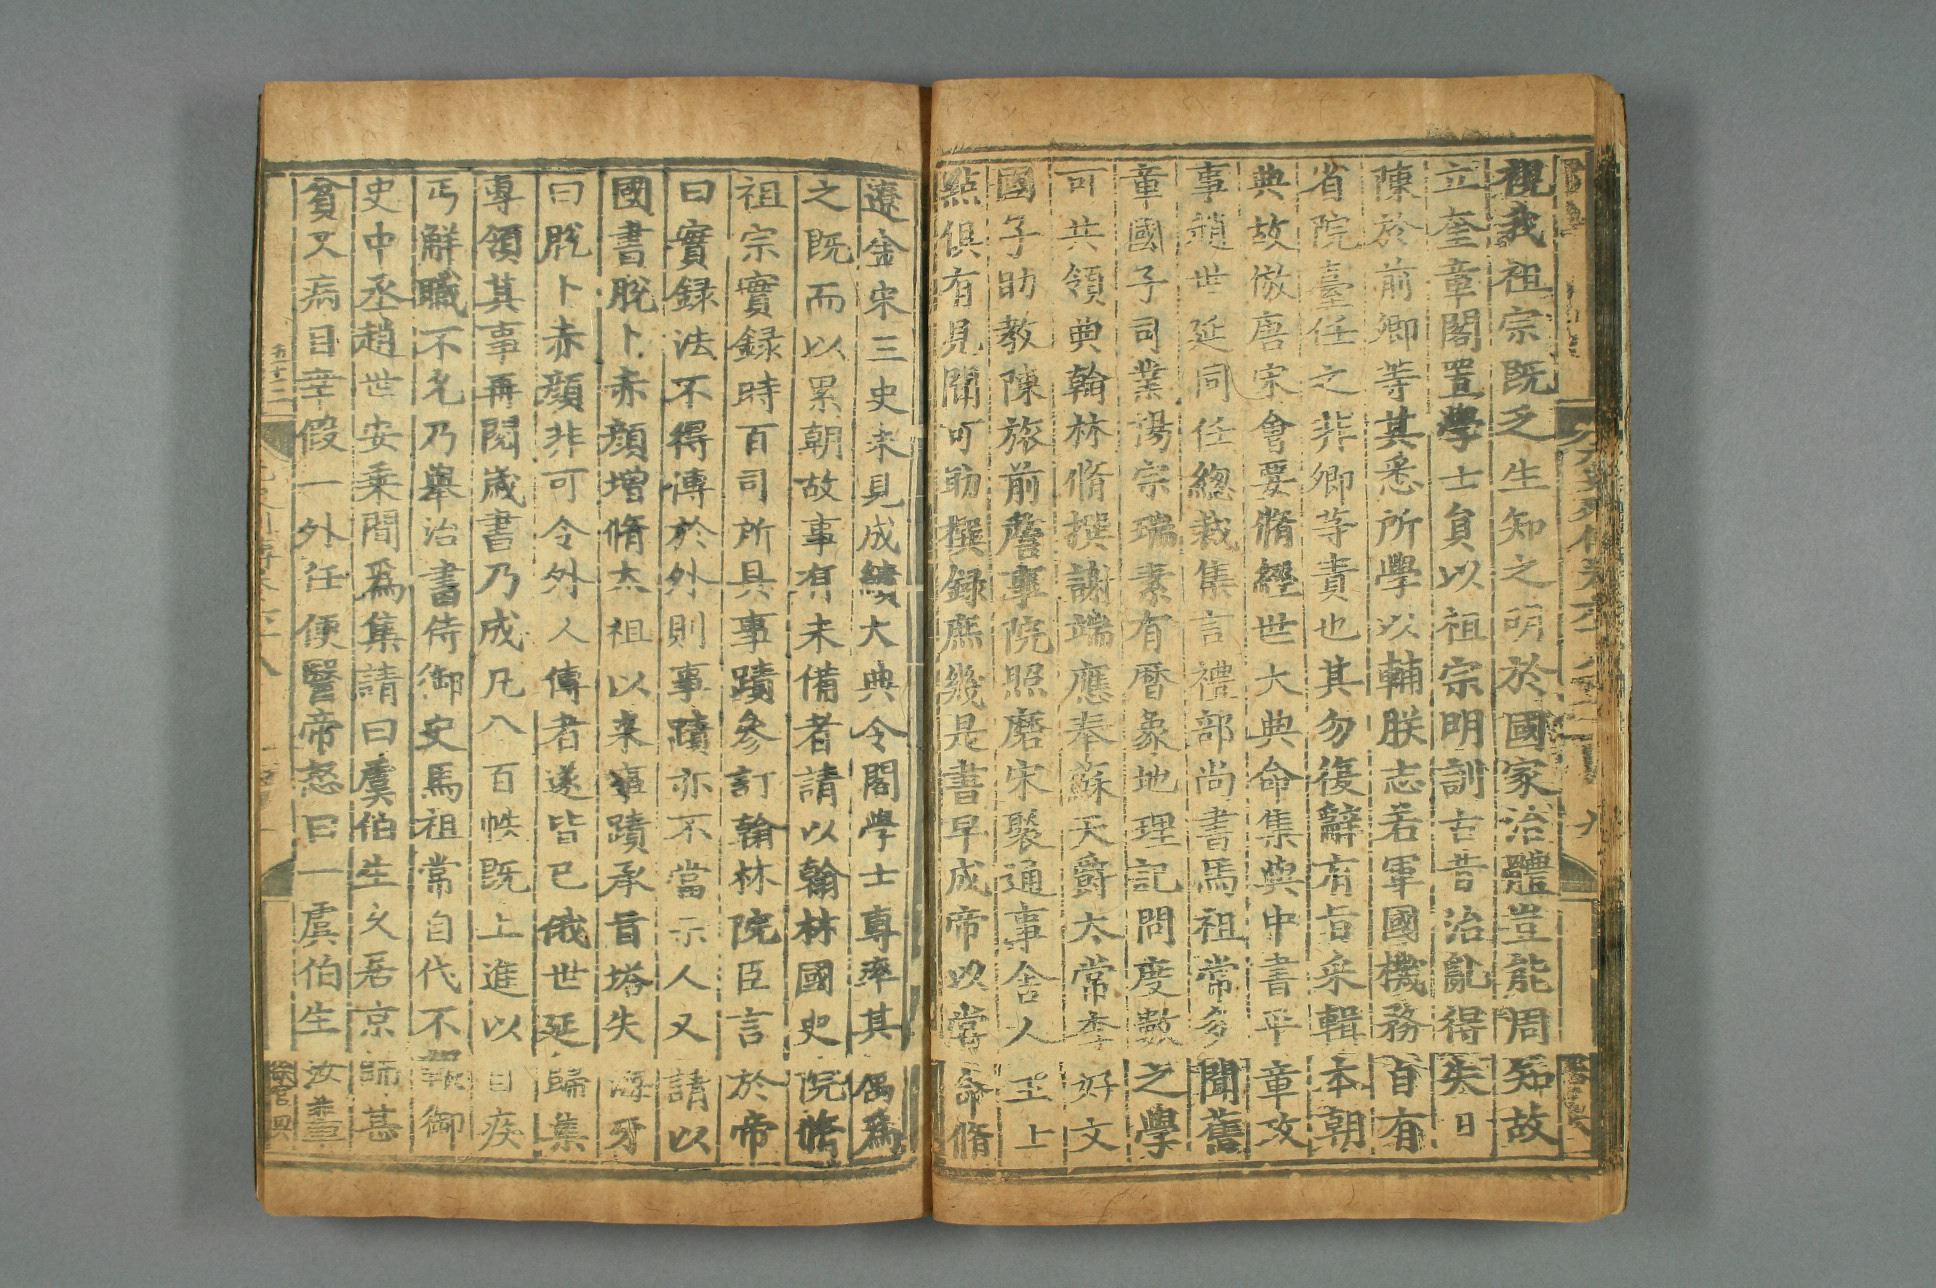 視我祖宗旣乏生知之明於國家治體豈能周知故
立奎章閣置學士貟以祖宗明訓古昔治亂得失日
陳於前卿等其悉所學以輔朕志若軍國機務自有
省院臺任之非卿等責也其勿復辭有旨采輯本朝
典故倣唐宋會要脩經世大典命集與中書平章政
事趙世延同任緫裁集言禮部尚書馬祖常多聞舊
章國子司業楊宗瑞素有曆象地理記問度數之學
可共領典翰林脩撰謝端應奉蘇天爵太常李好文
國子助教陳旅前詹事院照磨宋褧通事舍人王士
點俱有見聞可助撰録庶幾是書早成帝以嘗命脩
遼金宋三史未見成績大典令閣學士專率其屬爲
之旣而以累朝故事有未備者請以翰林國史院脩
祖宗實録時百司所具事蹟參訂翰林院臣言於帝
曰實録法不得傳於外則事蹟亦不當示人又請以
國書脫卜赤顔增脩太祖以来事蹟承旨塔失海牙
曰脫卜赤顔非可令外人傳者遂皆已俄世延歸集
專領其事再閱歲書乃成凡八百帙旣上進以目疾
丐解職不允乃舉治書侍御史馬祖常自代不報御
史中丞趙世安乘間爲集請曰虞伯生久居京師甚
貧又病目幸假一外任便醫帝怒曰一虞伯生汝輩